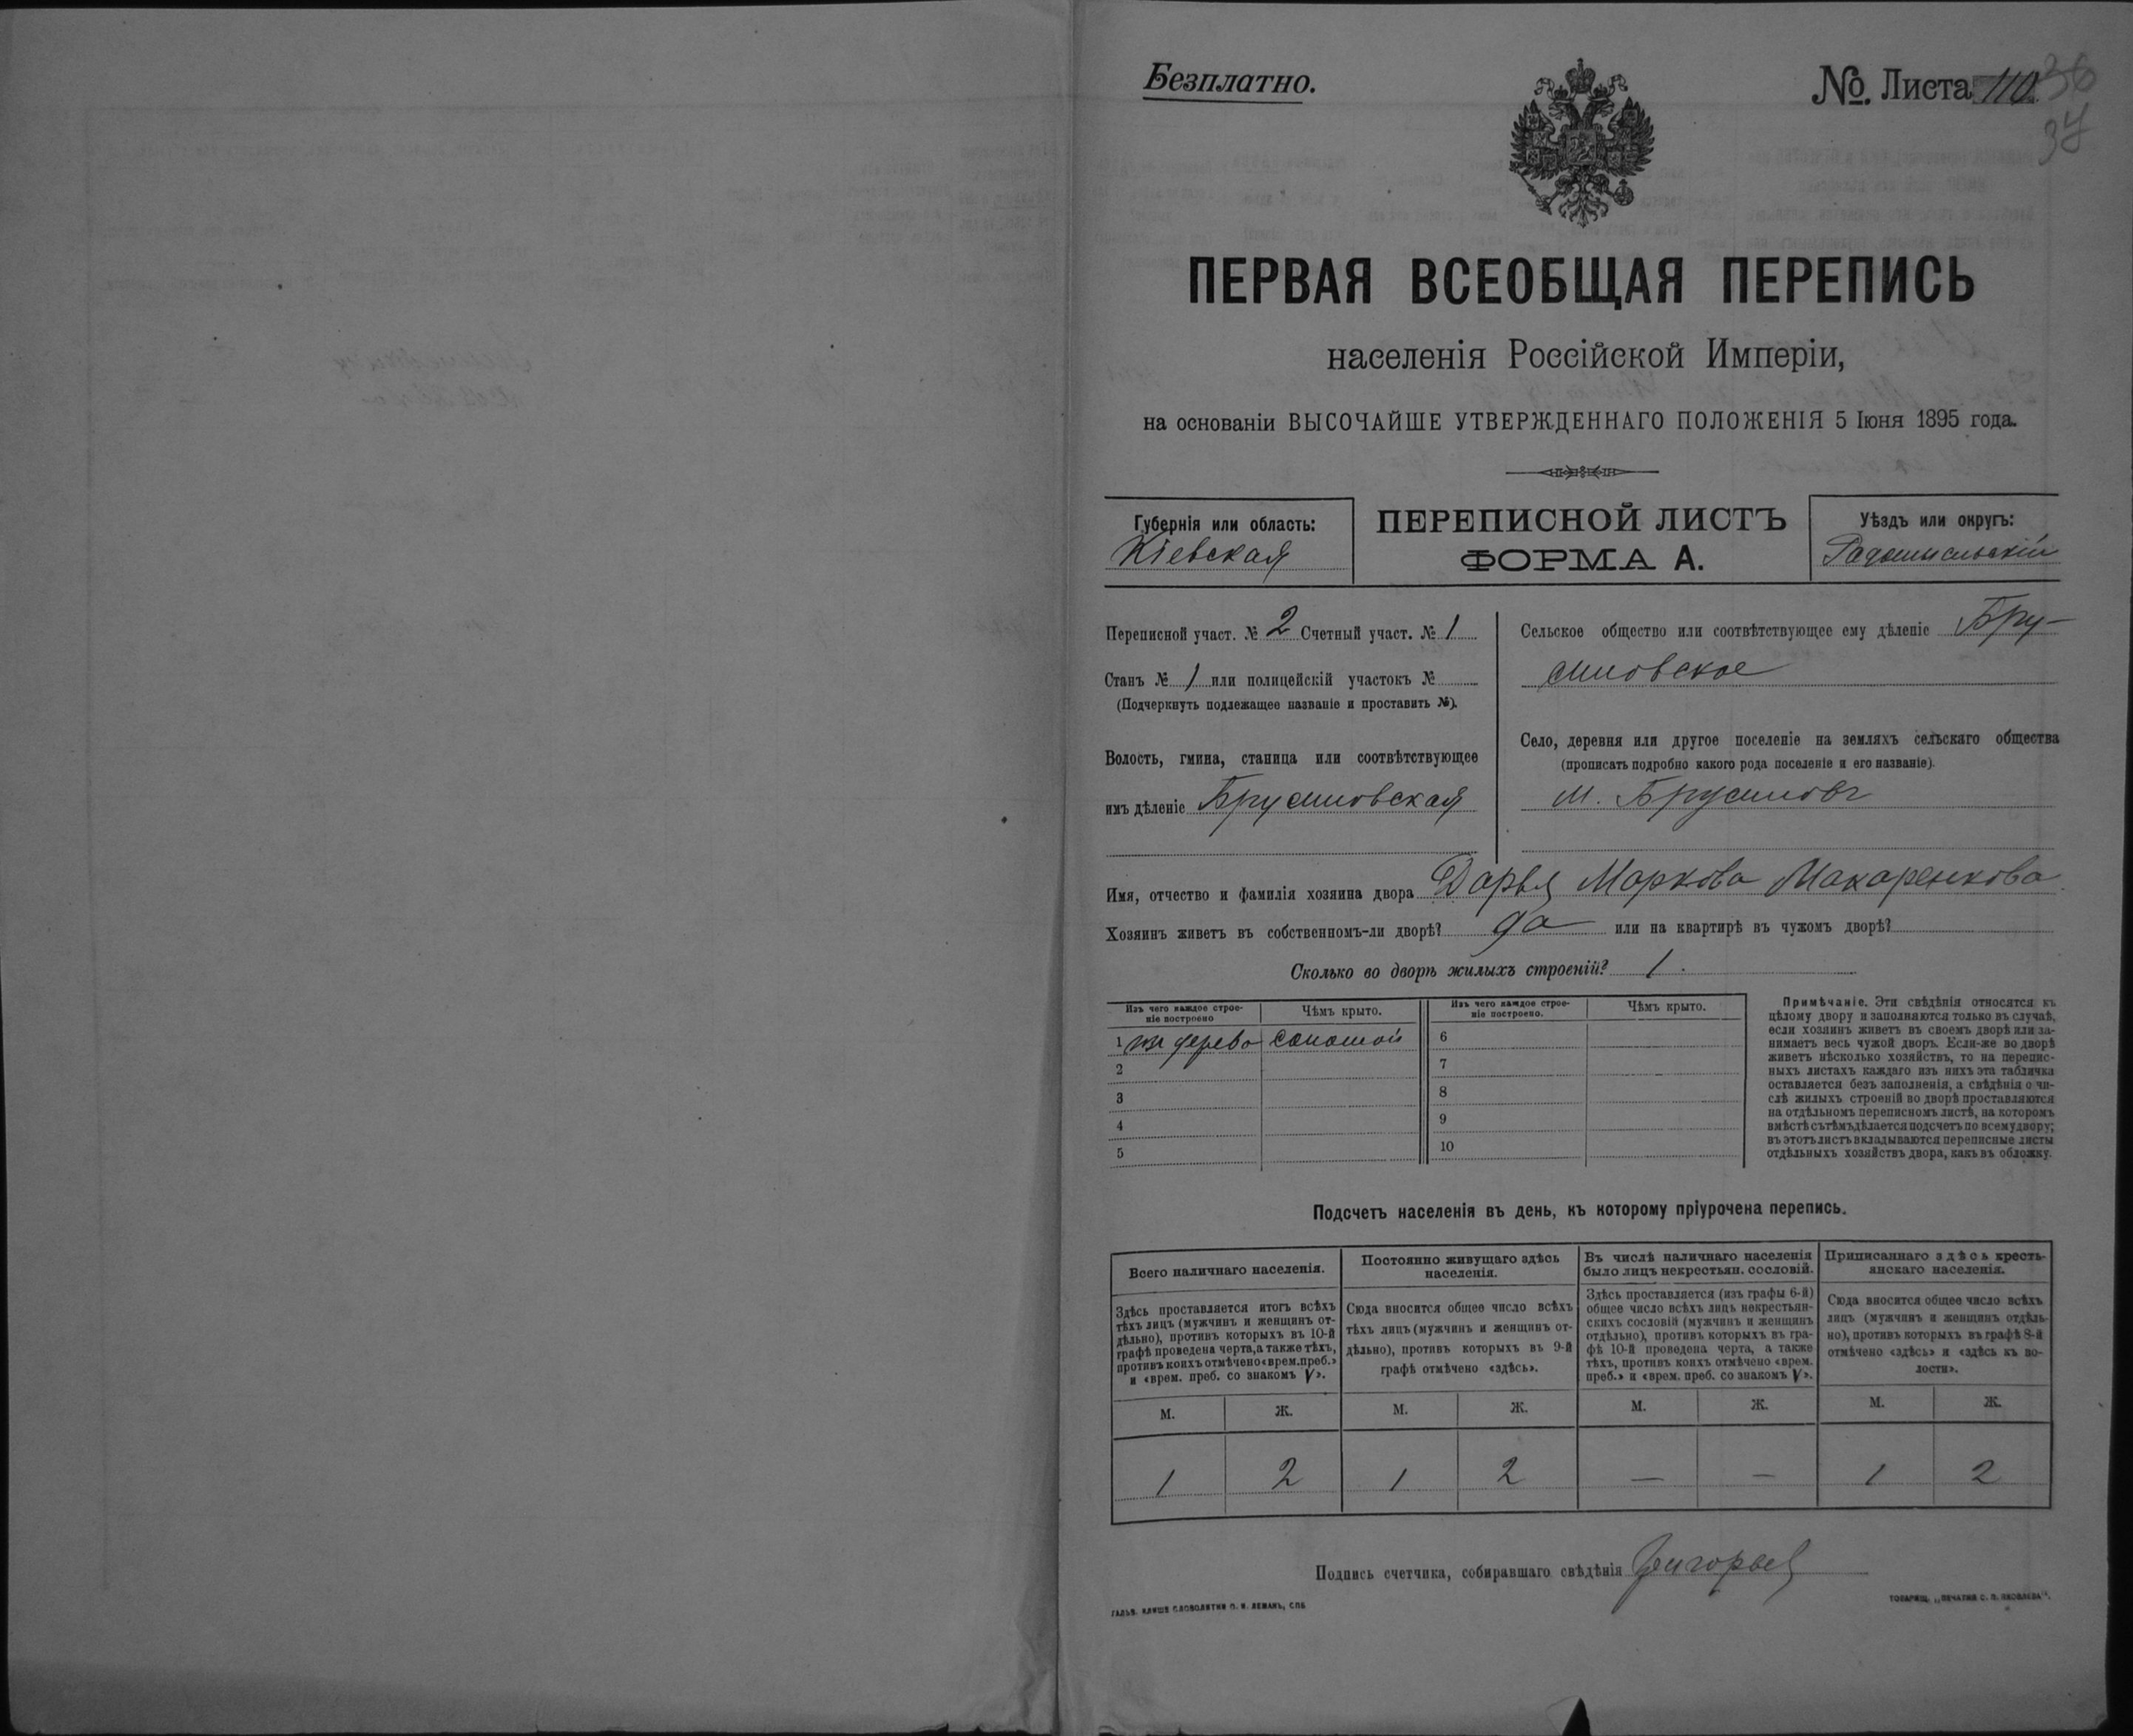 Безплатно.
№ Листа 110
36
37
ПЕРВАЯ ВСЕОБЩАЯ ПЕРЕПИСЬ
населенія Россійской Имперіи,
на основаніи ВЫСОЧАЙШЕ УТВЕРЖДЕННАГО ПОЛОЖЕНІЯ 5 Іюня 1895 года.
Губернія или область:
Кіевская
ПЕРЕПИСНОЙ ЛИСТЪ
ФОРМА А.
Уѣздъ или округъ:
Радомысльскій
Переписной участ. № 2 Счетный участ. № 1
Станъ № 1 или полицейскій участокъ №
(Подчеркнуть подлежащее названіе и проставить №).
Волость, гмина, станица или соотвѣтствующее
имъ дѣленіе Брусиловская
Сельское общество или соотвѣтствующее ему дѣленіе Бру-
силовское
Село, деревня или другое поселеніе на земляхъ сельскаго общества
(прописать подробно какого рода поселеніе и его названіе).
м. Брусиловъ
Имя, отчество и фамилія хозяина двора Дарья Маркова Макаренкова
Хозяинъ живетъ въ собственномъ-ли дворѣ? да или на квартирѣ въ чужомъ дворѣ?
Сколько во дворѣ жилыхъ строеній? 1.
Изъ чего каждое строе-
ніе построено
Чѣмъ крыто.
Изъ чего каждое строе-
ніе построено.
Чѣмъ крыто.
1 изъ дерева соломой
2
3
4
5
6
7
8
9
10
Примѣчаніе. Эти свѣдѣнія относятся къ
цѣлому двору и заполняются только въ случаѣ,
если хозяинъ живетъ въ своемъ дворѣ или за-
нимаетъ весь чужой дворъ. Если-же во дворѣ
живетъ нѣсколько хозяйствъ, то на перепис-
ныхъ листахъ каждаго изъ нихъ эта табличка
оставляется безъ заполненія, а свѣдѣнія о чи-
слѣ жилыхъ строеній во дворѣ проставляются
на отдѣльномъ переписномъ листѣ, на которомъ
вмѣстѣ съ тѣмъ дѣлается подсчетъ по всему двору;
въ этотъ листъ вкладываются переписные листы
отдѣльныхъ хозяйствъ двора, какъ въ обложку.
Подсчетъ населенія въ день, къ которому пріурочена перепись.
Всего наличнаго населенія.
Здѣсь проставляется итогъ всѣхъ
тѣхъ лицъ (мужчинъ и женщинъ от-
дѣльно), противъ которыхъ въ 10-й
графѣ проведена черта, а также тѣхъ,
противъ коихъ отмѣчено «врем. преб.»
и «врем. преб. со знакомъ V».
Постоянно живущаго здѣсь
населенія.
Сюда вносится общее число всѣхъ
тѣхъ лицъ (мужчинъ и женщинъ от-
дѣльно), противъ которыхъ въ 9-й
графѣ отмѣчено «здѣсь».
Въ числѣ наличнаго населенія
было лицъ некрестьян. сословій.
Здѣсь проставляется (изъ графы 6-й)
общее число всѣхъ лицъ некрестьян-
скихъ сословій (мужчинъ и женщинъ
отдѣльно), противъ которыхъ въ гра-
фѣ 10-й проведена черта, а также
тѣхъ, противъ коихъ отмѣчено «врем.
преб.» и «врем. преб. со знакомъ V».
Приписаннаго здѣсь кресть-
янскаго населенія.
Сюда вносится общее число всѣхъ
лицъ (мужчинъ и женщинъ отдѣль-
но), противъ которыхъ въ графѣ 8-й
отмѣчено «здѣсь» и «здѣсь къ во-
лости».
М. Ж. М. Ж. М. Ж. М. Ж.
1 2 1 2 — — 1 2
Подпись счетчика, собиравшаго свѣдѣнія Григорьев
ГАЛЬВ. КЛИШЕ СЛОВОЛИТНИ О. И. ЛЕМАНЪ, СПБ
ТОВАРИЩ. „ПЕЧАТНЯ С. П. ЯКОВЛЕВА".